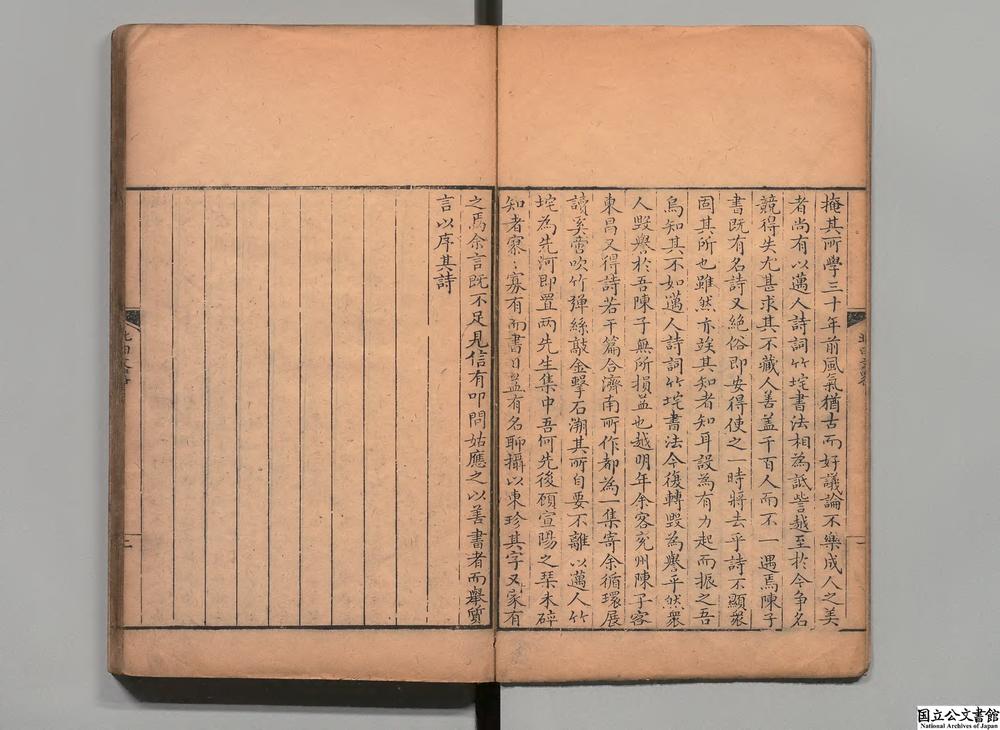 掩其所學三十年前風氣猶古而好議論不樂成人之美
者尚有以邁人詩詞竹垞書法相為詆訾越至於今争名
競得失尤甚求其不藏人善盖千百人而不一遇焉陳子
書既有名詩又絶俗即安得使之一時將去乎詩不顯衆
固其所也雖然亦竢其知者知耳設為有力起而振之吾
烏知其不如邁人詩詞竹垞書法今復轉毀為譽乎然衆
人毀譽於吾陳子無所損益也越明年余客兖州陳子客
東昌又得詩若干篇合濟南所作都為一集寄余循環展
讀奚啻吹竹彈絲敲金擊石溯其所自要不離以邁人竹
垞為先河即置两先生集中吾何先後顧宣陽之琹未碎
知者寥〻寡有而書日益有名聊攝以東珍其字又家有
之焉余言既不足見信有叩問姑應之以善書者而舉質
言以序其詩
国立公文書館
National Archives of Japan